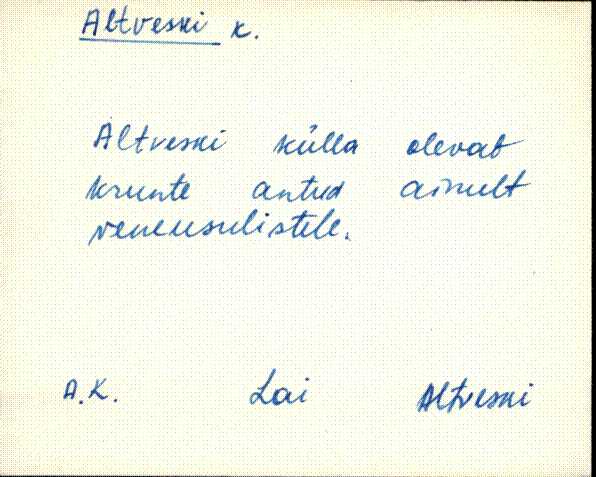 Altveski k.
Altveski külla olevat
krunte antud ainult
veneusulistele.
A.K. Lai Altveski